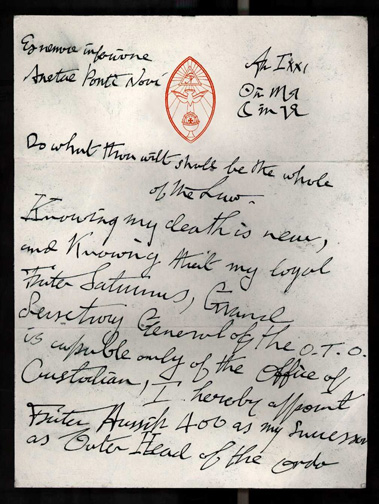 Ex nemore inferiore
Aretae Ponti Novi
An Ixxi
☉ in ♏
☾ in
Do what thou wilt shall be the whole
of the Law.
Knowing my death is near,
and Knowing that my loyal
Frater Saturnus, Grand
Secretary General of the O.T.O.
is capable only of the Office of
Custodian, I hereby appoint
Frater Aussik 400 as my Successor
as Outer Head of the order